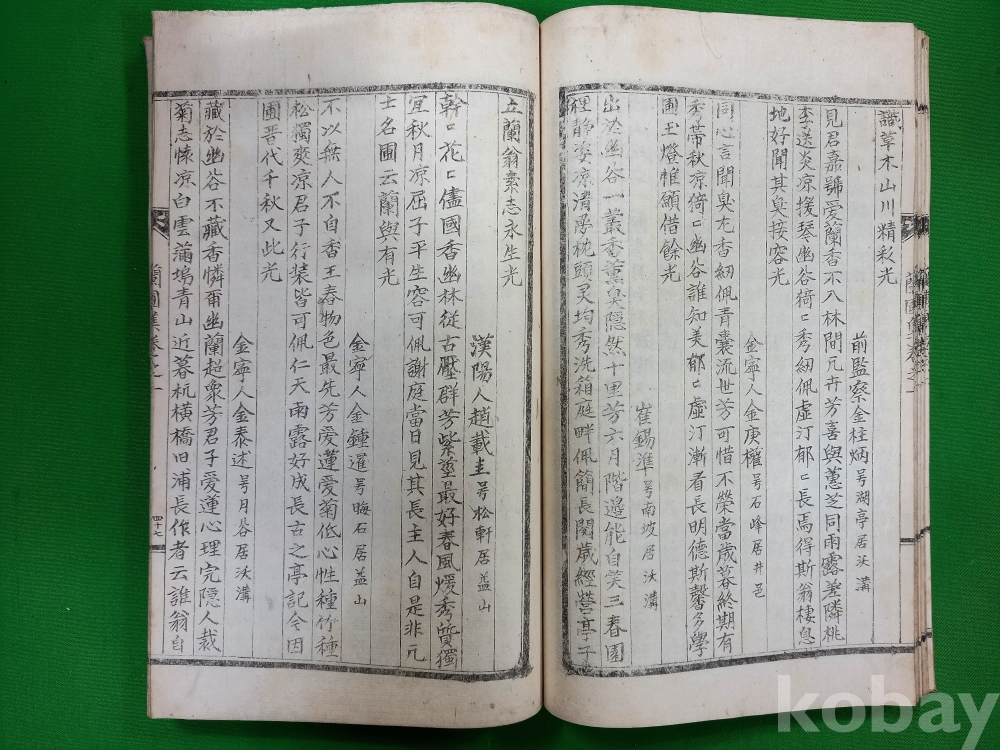 識草木山川精彩光
前監察金柱炳 号湖亭居沃溝
見君嘉號爱蘭香不入林間凡卉芳喜與蕙芝同雨露羞隣桃
李送炎凉援琴幽谷猗〻秀紉佩虛汀郁〻長焉得斯翁棲息
地好聞其臭接容光
金寧人金庚權 号石峰居井邑
同心言聞臭尤香紉佩青囊流世芳可惜不榮當歲暮終期有
秀带秋凉猗〻幽谷誰知美郁〻虛汀漸看長明德斯馨多學
圃玉燈帷願借餘光
崔錫準 号南坡居沃溝
出於幽谷一叢香薰臭隱然十里芳六月階邊能自笑三春園
裡静姿凉清愚枕頭灵均秀洗箱庭畔佩簡長閱歲經营亭子
立蘭翁素志永生光
漢陽人趙載圭 号松軒居益山
幹〻花〻儘國香幽林從古壓群芳紫莖最好春風煖秀質獨
宜秋月凉屈子平生容可佩謝庭當日見其長主人自是非凡
士名圃云蘭與有光
金寧人金鍾暹 号晦石居益山
不以無人不自香王春物色最先芳爱蓮爱菊低心性種竹種
松獨爽凉君子行裝皆可佩仁天雨露好成長古之亭記今因
圃晋代千秋又此光
金寧人金泰述 号月谷居沃溝
藏於幽谷不藏香憐爾幽蘭超衆芳君子爱蓮心理完隐人裁
菊志懷凉白雲蒲塢青山近暮杭横橋旧浦長作者云誰翁自
蘭圃集卷之一
四十七
kobay